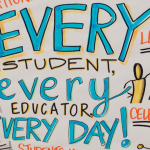 EVERY
STUDENT,
every
EDUCATOR,
EVERY DAY!